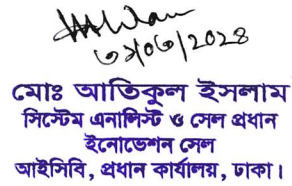 ৩১/০৩/২০২৪
মোঃ আতিকুল ইসলাম
সিস্টেম এনালিস্ট ও সেল প্রধান
ইনোভেশন সেল
আইসিবি, প্রধান কার্যালয়, ঢাকা।